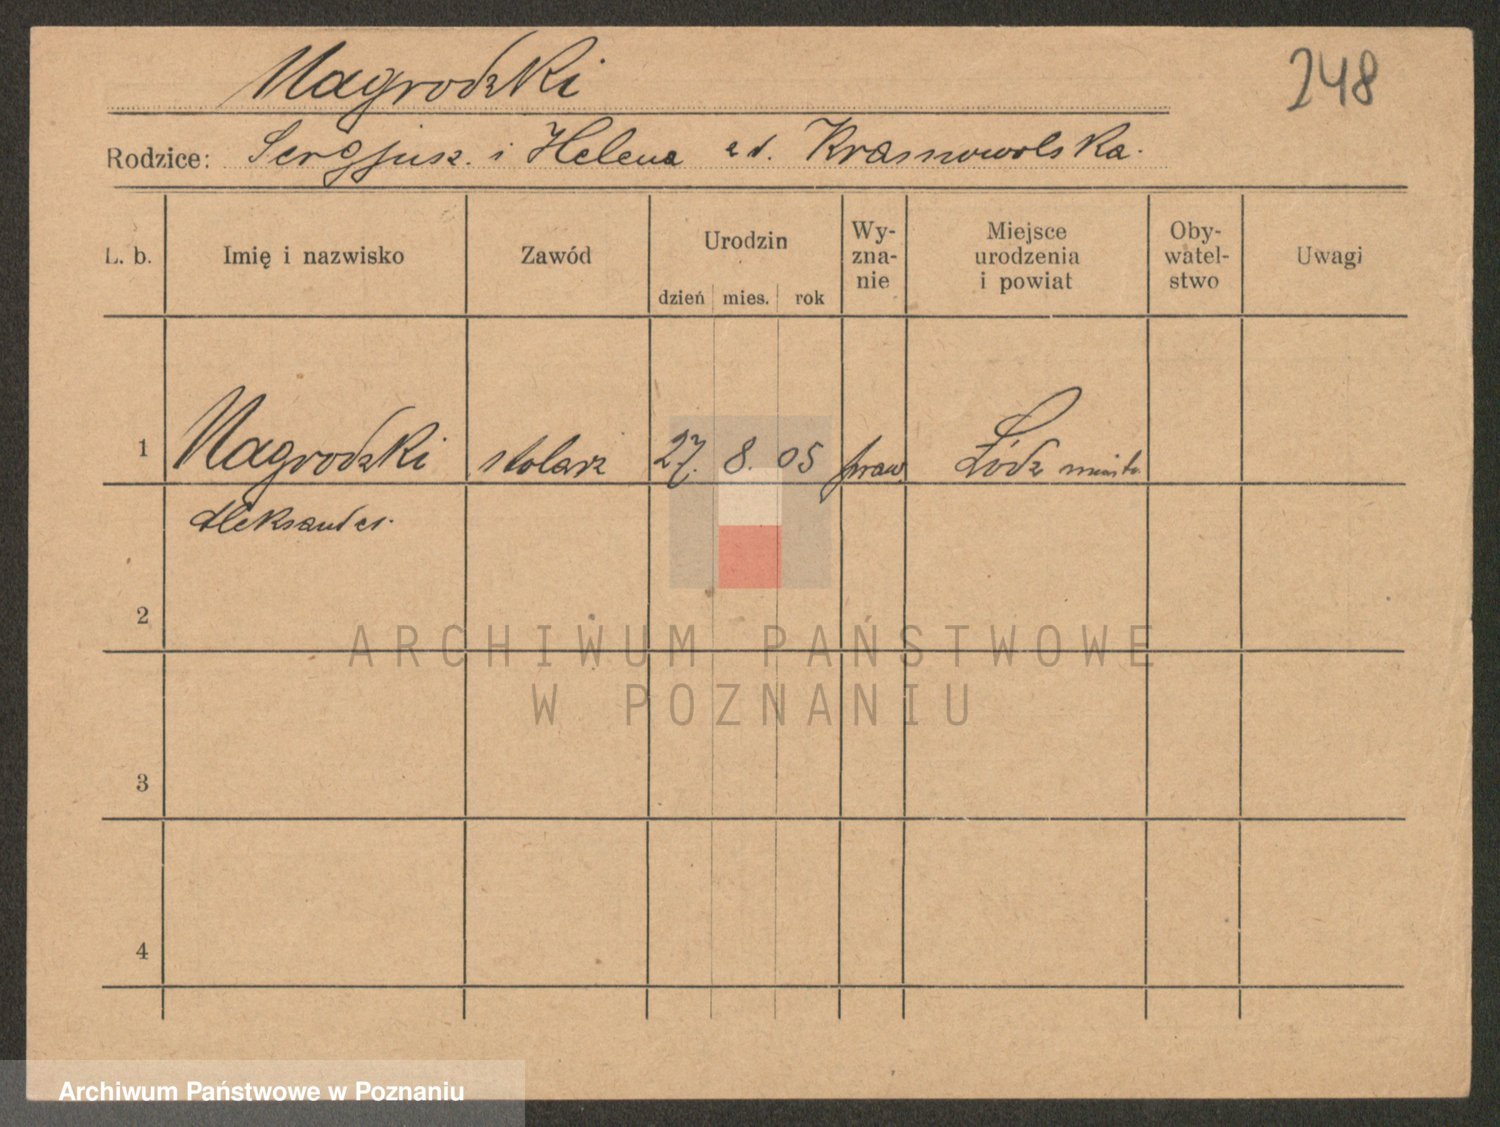 Nagrodzki
248
Rodzice: Sergjusz. i Helena zd. Krasnowolska.
L. b. Imię i nazwisko Zawód Urodzin dzień mies. rok Wy-zna-nie Miejsce urodzenia i powiat Oby-watel-stwo Uwagi
1 Nagrodzki stolarz 27. 8. 05 praw. Łódz miasto
Aleksander.
2
3
4
ARCHIWUM PAŃSTWOWE
W POZNANIU
Archiwum Państwowe w Poznaniu